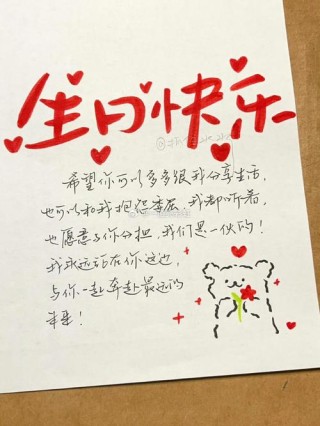 生日快乐
希望你可以多多跟我分享生活,
也可以和我抱怨委屈,我都听着,
也愿意与你分担,我们是一伙的!
我永远站在你这边,
与你一起奔赴最远的
未来!